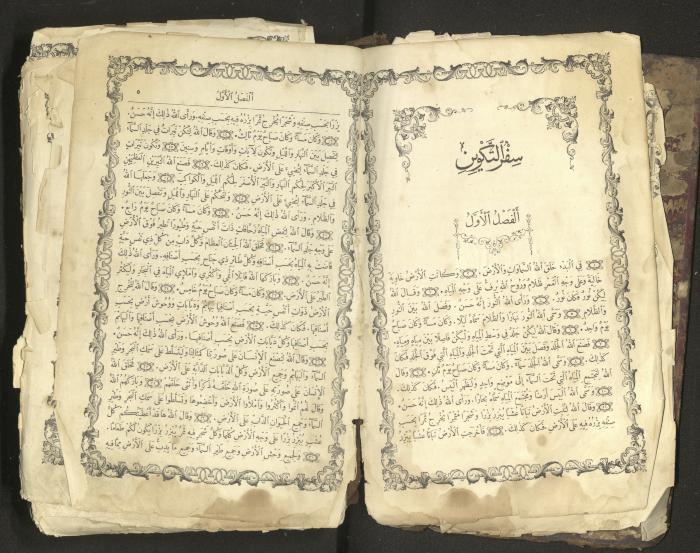 سِفْرُ التَّكْوِينِ
اَلْفَصْلُ الْأَوَّلُ
فِي الْبَدْءِ خَلَقَ اللهُ السَّمَاوَاتِ وَالْأَرْضَ. وَكَانَتِ الْأَرْضُ خَاوِيَةً
خَالِيَةً وَعَلَى وَجْهِ الْغَمْرِ ظَلَامٌ وَرُوحُ اللهِ يُرِفُّ عَلَى وَجْهِ الْمِيَاهِ. وَقَالَ اللهُ
لِيَكُنْ نُورٌ فَكَانَ نُورٌ. وَرَأَى اللهُ النُّورَ إِنَّهُ حَسَنٌ. وَفَصَلَ اللهُ بَيْنَ النُّورِ
وَالظَّلَامِ وَسَمَّى اللهُ النُّورَ نَهَارًا وَالظَّلَامَ سَمَّاهُ لَيْلًا. وَكَانَ مَسَاءٌ وَكَانَ صَبَاحٌ
يَوْمٌ وَاحِدٌ. وَقَالَ اللهُ لِيَكُنْ جَلَدٌ فِي وَسَطِ الْمِيَاهِ وَلْيَكُنْ فَاصِلًا بَيْنَ مِيَاهٍ وَمِيَاهٍ.
فَصَنَعَ اللهُ الْجَلَدَ وَفَصَلَ بَيْنَ الْمِيَاهِ الَّتِي تَحْتَ الْجَلَدِ وَالْمِيَاهِ الَّتِي فَوْقَ الْجَلَدِ فَكَانَ
كَذٰلِكَ. وَسَمَّى اللهُ الْجَلَدَ سَمَاءً. وَكَانَ مَسَاءٌ وَكَانَ صَبَاحٌ يَوْمٌ ثَانٍ. وَقَالَ اللهُ
لِتَجْتَمِعِ الْمِيَاهُ الَّتِي تَحْتَ السَّمَاءِ إِلَى مَوْضِعٍ وَاحِدٍ وَلْيَظْهَرِ الْيَبَسُ. فَكَانَ كَذٰلِكَ.
وَسَمَّى اللهُ الْيَبَسَ أَرْضًا وَمُجْتَمَعَ الْمِيَاهِ سَمَّاهُ بِحَارًا. وَرَأَى اللهُ ذٰلِكَ إِنَّهُ حَسَنٌ.
وَقَالَ اللهُ لِتُنْبِتِ الْأَرْضُ نَبَاتًا عُشْبًا يُبْزِرُ بِزْرًا وَشَجَرًا مُثْمِرًا يُخْرِجُ ثَمَرًا بِحَسَبِ
صِنْفِهِ بِزْرُهُ فِيهِ عَلَى الْأَرْضِ فَكَانَ كَذٰلِكَ. فَأَخْرَجَتِ الْأَرْضُ نَبَاتًا عُشْبًا يُبْزِرُ
اَلْفَصْلُ الْأَوَّلُ ٥
بِزْرًا بِحَسَبِ صِنْفِهِ وَشَجَرًا يُخْرِجُ ثَمَرًا بِزْرُهُ فِيهِ بِحَسَبِ صِنْفِهِ. وَرَأَى اللهُ ذٰلِكَ إِنَّهُ حَسَنٌ.
وَكَانَ مَسَاءٌ وَكَانَ صَبَاحٌ يَوْمٌ ثَالِثٌ. وَقَالَ اللهُ لِتَكُنْ نَيِّرَاتٌ فِي جَلَدِ السَّمَاءِ
لِتَفْصِلَ بَيْنَ النَّهَارِ وَاللَّيْلِ وَتَكُونَ لِآيَاتٍ وَأَوْقَاتٍ وَأَيَّامٍ وَسِنِينَ. وَتَكُونَ نَيِّرَاتٍ
فِي جَلَدِ السَّمَاءِ لِتُضِيءَ عَلَى الْأَرْضِ. فَكَانَ كَذٰلِكَ. فَصَنَعَ اللهُ النَّيِّرَيْنِ الْعَظِيمَيْنِ
النَّيِّرَ الْأَكْبَرَ لِحُكْمِ النَّهَارِ وَالنَّيِّرَ الْأَصْغَرَ لِحُكْمِ اللَّيْلِ وَالْكَوَاكِبَ. وَجَعَلَهَا اللهُ
فِي جَلَدِ السَّمَاءِ لِتُضِيءَ عَلَى الْأَرْضِ. وَلِتَحْكُمَ عَلَى النَّهَارِ وَاللَّيْلِ وَتَفْصِلَ بَيْنَ النُّورِ
وَالظَّلَامِ. وَرَأَى اللهُ ذٰلِكَ إِنَّهُ حَسَنٌ. وَكَانَ مَسَاءٌ وَكَانَ صَبَاحٌ يَوْمٌ رَابِعٌ.
وَقَالَ اللهُ لِتَفِضِ الْمِيَاهُ زَحَّافَاتٍ ذَاتَ أَنْفُسٍ حَيَّةٍ وَطُيُورًا تَطِيرُ فَوْقَ الْأَرْضِ
عَلَى وَجْهِ جَلَدِ السَّمَاءِ. فَخَلَقَ اللهُ الْحِيتَانَ الْعِظَامَ وَكُلَّ دَابٍّ مِنْ كُلِّ ذِي نَفْسٍ حَيَّةٍ
فَاضَتْ بِهِ الْمِيَاهُ بِحَسَبِ أَصْنَافِهِ وَكُلَّ طَائِرٍ ذِي جَنَاحٍ بِحَسَبِ أَصْنَافِهِ. وَرَأَى اللهُ ذٰلِكَ
إِنَّهُ حَسَنٌ. وَبَارَكَهَا اللهُ قَائِلًا انْمِي وَاكْثُرِي وَامْلَإِي الْمِيَاهَ فِي الْبِحَارِ وَلْيَكْثُرِ
الطَّيْرُ عَلَى الْأَرْضِ. وَكَانَ مَسَاءٌ وَكَانَ صَبَاحٌ يَوْمٌ خَامِسٌ. وَقَالَ اللهُ لِتُخْرِجِ
الْأَرْضُ ذَوَاتِ أَنْفُسٍ حَيَّةٍ بِحَسَبِ أَصْنَافِهَا بَهَائِمَ وَدَبَّابَاتٍ وَوُحُوشَ أَرْضٍ بِحَسَبِ
أَصْنَافِهَا. فَكَانَ كَذٰلِكَ. فَصَنَعَ اللهُ وُحُوشَ الْأَرْضِ بِحَسَبِ أَصْنَافِهَا وَالْبَهَائِمَ
بِحَسَبِ أَصْنَافِهَا وَكُلَّ دَبَّابَاتِ الْأَرْضِ بِحَسَبِ أَصْنَافِهَا. وَرَأَى اللهُ ذٰلِكَ إِنَّهُ حَسَنٌ.
وَقَالَ اللهُ لِنَصْنَعِ الْإِنْسَانَ عَلَى صُورَتِنَا كَمِثَالِنَا وَلْيَتَسَلَّطْ عَلَى سَمَكِ الْبَحْرِ وَطَيْرِ
السَّمَاءِ وَالْبَهَائِمِ وَجَمِيعِ الْأَرْضِ وَكُلِّ الدَّبَّابَاتِ الدَّابَّةِ عَلَى الْأَرْضِ. فَخَلَقَ اللهُ
الْإِنْسَانَ عَلَى صُورَتِهِ عَلَى صُورَةِ اللهِ خَلَقَهُ ذَكَرًا وَأُنْثَى خَلَقَهُمْ. وَبَارَكَهُمُ اللهُ
وَقَالَ لَهُمُ انْمُوا وَاكْثُرُوا وَامْلَأُوا الْأَرْضَ وَأَخْضِعُوهَا وَتَسَلَّطُوا عَلَى سَمَكِ الْبَحْرِ وَطَيْرِ
السَّمَاءِ وَجَمِيعِ الْحَيَوَانِ الدَّابِّ عَلَى الْأَرْضِ. وَقَالَ اللهُ هَا قَدْ أَعْطَيْتُكُمْ كُلَّ
عُشْبٍ يُبْزِرُ بِزْرًا عَلَى وَجْهِ الْأَرْضِ كُلِّهَا وَكُلَّ شَجَرٍ فِيهِ ثَمَرٌ يُبْزِرُ بِزْرًا يَكُونُ لَكُمْ طَعَامًا.
وَلِجَمِيعِ وَحْشِ الْأَرْضِ وَجَمِيعِ طَيْرِ السَّمَاءِ وَجَمِيعِ مَا يَدِبُّ عَلَى الْأَرْضِ مِمَّا فِيهِ